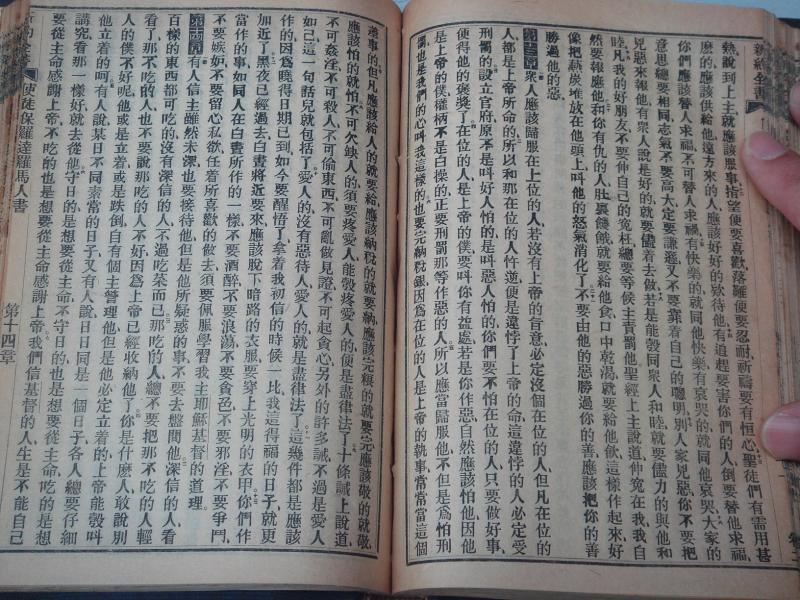 新約全書
熱說到上主就應該服事指望便要歡喜落難便要忍耐祈禱要有恒心聖徒們有需用甚
麼的應該供給他遠方來的人應該好好的欵待他有追趕要害你們的人倒要替他求福
你們應該替人求福不可替人求禍有快樂的就同他快樂有哀哭的就同他哀哭大家的
意思總要相同志氣不要高大定要謙遜又不要靠着自己的聰明別人家兇惡你不要把
兇惡來報他有衆人說是好的就要儘着去做若是能彀同衆人和睦就要儘力的與他和
睦凡我的好朋友不要伸自己的寃枉總要等候主責罰他聖經上主說道伸寃在我我自
然要報應他和你有仇的人肚裏饑餓就要給他食口中乾渴就要給他飲這樣作起來好
像把燕炭堆放在他頭上叫他的怒氣消化了不要由他的惡勝過你的善應該把你的善
勝過他的惡
第十三章衆人應該歸服在上位的人若沒有上帝的旨意必定沒個在位的人但凡在位的
人都是上帝所命的所以和那在位的人忤逆便是違悖了上帝的命這違悖的人必定受
刑罰的設立官府原不是叫好人怕的是叫惡人怕的你們要不怕在位的人只要做好事
便有他的褒獎了在位的人是上帝的僕要叫你有益處若是你作惡自然應該怕他因他
是上帝的僕權柄不是白操的正要刑罰那等作惡的人所以應當歸服他不但是爲怕刑
罰也是我們的心叫我這樣的也要完納稅銀因爲在位的人是上帝的執事常常當這個
差事的但凡應該給人的就要給應該納稅的就要納應該完糧的就要完應該敬的就敬
應該怕的就怕不可欠缺人的須要疼愛人能彀疼愛人的便是盡律法了十條誡上說道
不可姦淫不可殺人不可偷東西不可亂做見證不可起貪心另外的許多誡不過是愛人
如己這一句話兒就包括了愛人的沒有惡待人愛人的就是盡律法了這幾件都是應該
作的因爲曉得日期已到如今要醒悟了拿着我初信的時候一比我這得福的日子就更
加近了黑夜已經過去白晝將近要來應該脫下暗路的衣服要穿上光明的衣甲你們作
當作的事如同人在白晝所作的一樣不要酒醉不要浪蕩不要貪色不要邪淫不要爭鬥
不要嫉妒不要留心私欲任着所喜歡的做去須要佩服學習我主耶穌基督的道理
第十四章有人信主雖然未深也要接待他但是他所疑惑的事不要去盤問他深信的人看
百樣的東西都可吃的沒有深信的人不過吃菜而已那吃的人總不要把那不吃的人輕
看了那不吃的人也不要說那吃的人不好因爲上帝已經收納他了你是什麼人敢說別
人的僕不好呢他或是立着或是跌倒自有個主管理他但是他必定立着的上帝能彀叫
他立着的呵有人說某日不同素常的日子又有人說日日同是一個日子各人總要仔細
講究看那一樣好就去從他守日的是想要從主命不守日的也是想要從主命吃的是想
要從主命感謝上帝不吃的也是想要從主命感謝上帝我們信基督的人生是不能自己
使徒保羅達羅馬人書
第十四章